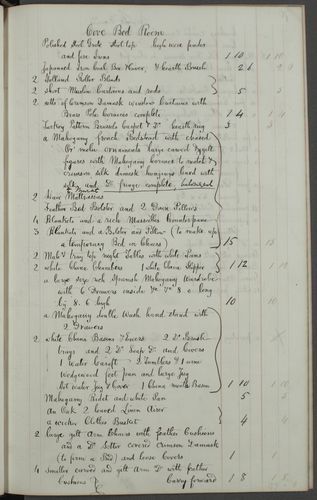 Cove Bed Room
Polished Steel Grate Steel top high wire fender
and fire Irons 1 10
Japanned Iron bush Box Hearth Brush 2 6
2 Holland Roller Blinds
2 short Muslin Curtains and rods 5
2 setts of Crimson Damask window Curtains with
Brass Pole Cornices complete 1 4
Turkey Pattern Brussels Carpet & Do hearth rug 3
a Mahogany french Bedstead with chased
Or molu ornaments large carved & gilt
figures with Mahogany Cornice to match &
Crimson silk damask hangings lined with
silk and Do fringe complete
2 Hair Mattresses
Feather Bed Bolster and 2 Down Pillows
4 Blankets and a rich Marseilles Counterpane
3 Blankets and a Bolster and Pillow (to make up
a temporary Bed on Chairs) 15
2 Mahy tray top night Tables with white Pans
2 white China Chambers 1 white China Slipper 1 12
a large size rich Spanish Mahogany Wardrobe
with 6 Drawers inside 8 6 long
by 8. 6 high 10
a Mahogany double Wash hand stand with
2 Drawers
2 white China Basons & Ewers 2 Do Brush
trays and 2 Do Soap Do and Covers
1 water Caraft 2 Tumblers & 1 new
wedgewood foot pan and large Jug
hot water Jug & Cover 1 China mouth Bason 1 10
Mahogany Bidet and white Pan 5
An Oak 2 leaved Linen Airer
a wicker Clothes Basket 4
2 large gilt Arm Chairs with feather Cushions
and a Do Settee covered Crimson Damask
(to form a Bed) and loose Covers 1 1
4 smaller carved and gilt Arm Do with feather
Cushions Carry forward 1 8